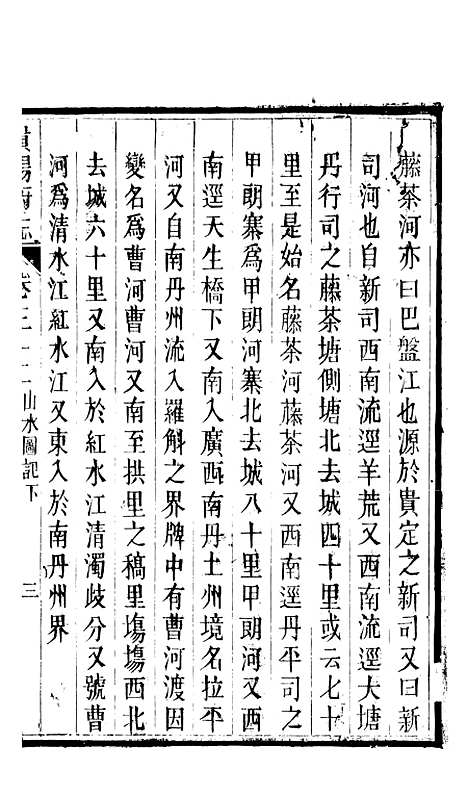 藤茶河亦曰巴盤江也源於貴定之新司又曰新
司河也自新司西南流逕羊荒又西南流逕大塘
丹行司之藤茶塘側塘北去城四十里或云七十
里至是始名藤茶河藤茶河又西南逕丹平司之
甲朗寨爲甲朗河寨北去城八十里甲朗河又西
南逕天生橋下又入廣西南丹土州境名拉平
河又自南丹州流入羅斛之界牌中有曹河渡因
變名爲曹河曹河又南至拱里之稿里塲塲西北
去城六十里又南入於紅水江清濁歧分又號曹
河爲清水江紅水江又東入於南丹州界
貴陽府志 卷三十二 山水圖記下 三